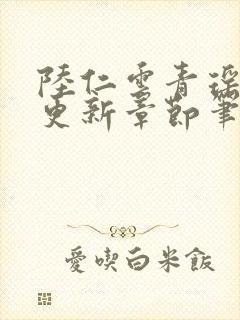 陸仁雲青瑤
更新章節筆
愛喫白米飯